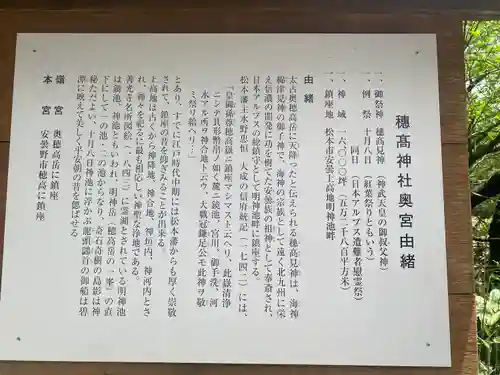 穂髙神社奥宮由緒
一、御祭神 穂髙見神 (神武天皇の御叔父神)
一、例祭 十月八日 (紅葉祭りともいう)
同日 (日本アルプス遭難者慰霊祭)
一、神域 一六〇〇〇坪 (五万二千八百平方米)
一、鎮座地 松本市安曇上高地明神池畔
由緒
太古奥穂高岳に天降ったと伝えられる穂高見神は、海神
綿津見神の御子神で、海神の宗族として遠く北九州に栄
え信濃の開発に功を樹てた安曇族の祖神として奉斎され、
日本アルプスの総鎮守として明神池畔に鎮座する。
松本藩主水野忠恒 大成の信府統記(一七四二)には、
「皇御孫尊穂高嶽ニ鎮座マシマスト云ヘリ、此嶽清浄
ニシテ其形幣帛ノ如ク麓ニ鏡池、宮川、御手洗、河
水アル所ヲ神合地トニウ、大職冠鎌足公モ此神ヲ敬
ミ祭リ給ヘリ…」
とあり、すでに江戸時代中期には松本藩からも厚く崇敬
されて、鎮座の昔を仰ぎみることが出来る。
上高地は古くから神降地、神合地、神垣内、神河内とさ
れ、神々を祀るに最も相応しい神聖な浄地である。
善光寺名所図絵(一八四三)に霊湖とされている明神池
は鏡池、神池ともいわれ、明神岳(穂高岳の一峯)の直
下にして一の池・二の池からなり、奇石奇樹の島影は神
秘ただよい、十月八日神池に浮かぶ龍頭鷁首の御船は碧
潭に映えて美しく平安朝の昔を偲ばせる
嶺宮 奥穂高岳に鎮座
本宮 安曇野市穂高に鎮座